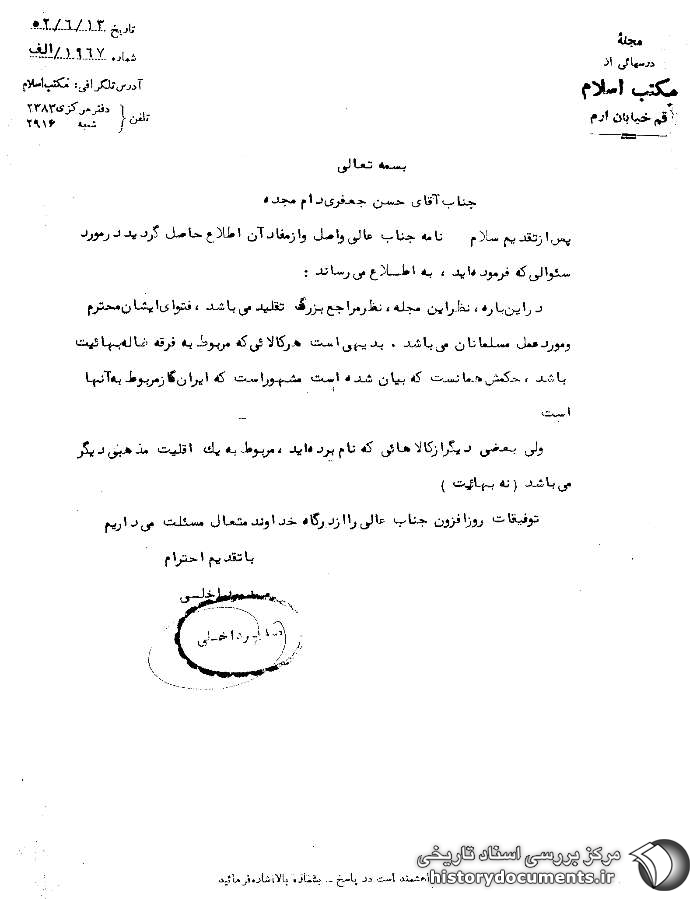 مجلهٔ
درسهائی از
مکتب اسلام
قم خیابان ارم
تاریخ ۵۲/۶/۱۳
شماره ۱۹۶۷/الف
آدرس تلگرافی: مکتب اسلام
تلفن { دفتر مرکزی ۲۳۸۳
شعبه ۲۹۱۶
بسمه تعالی
جناب آقای حسن جعفری دام مجده
پس از تقدیم سلام نامه جناب عالی واصل و از مفاد آن اطلاع حاصل گردید در مورد
سئوالی که فرموده اید ، به اطلاع می رساند :
در این باره ، نظر این مجله ، نظر مراجع بزرگ تقلید می باشد ، فتوای ایشان محترم
و مورد عمل مسلمانان می باشد . بدیهی است هر کالائی که مربوط به فرقه ضاله بهائیت
باشد ، حکمش همانست که بیان شده است مشهور است که ایران گاز مربوط به آنها
است
ولی بعضی دیگر از کالاهائی که نام برده اید ، مربوط به یك اقلیت مذهبی دیگر
می باشد ( نه بهائیت )
توفیقات روز افزون جناب عالی را از درگاه خداوند متعال مسئلت می داریم
با تقدیم احترام
مدیر داخلی
مدیر داخلی
است در پاسخ ـ بشماره بالا اشاره فرمائید
مرکز بررسی اسناد تاریخی
historydocuments.ir